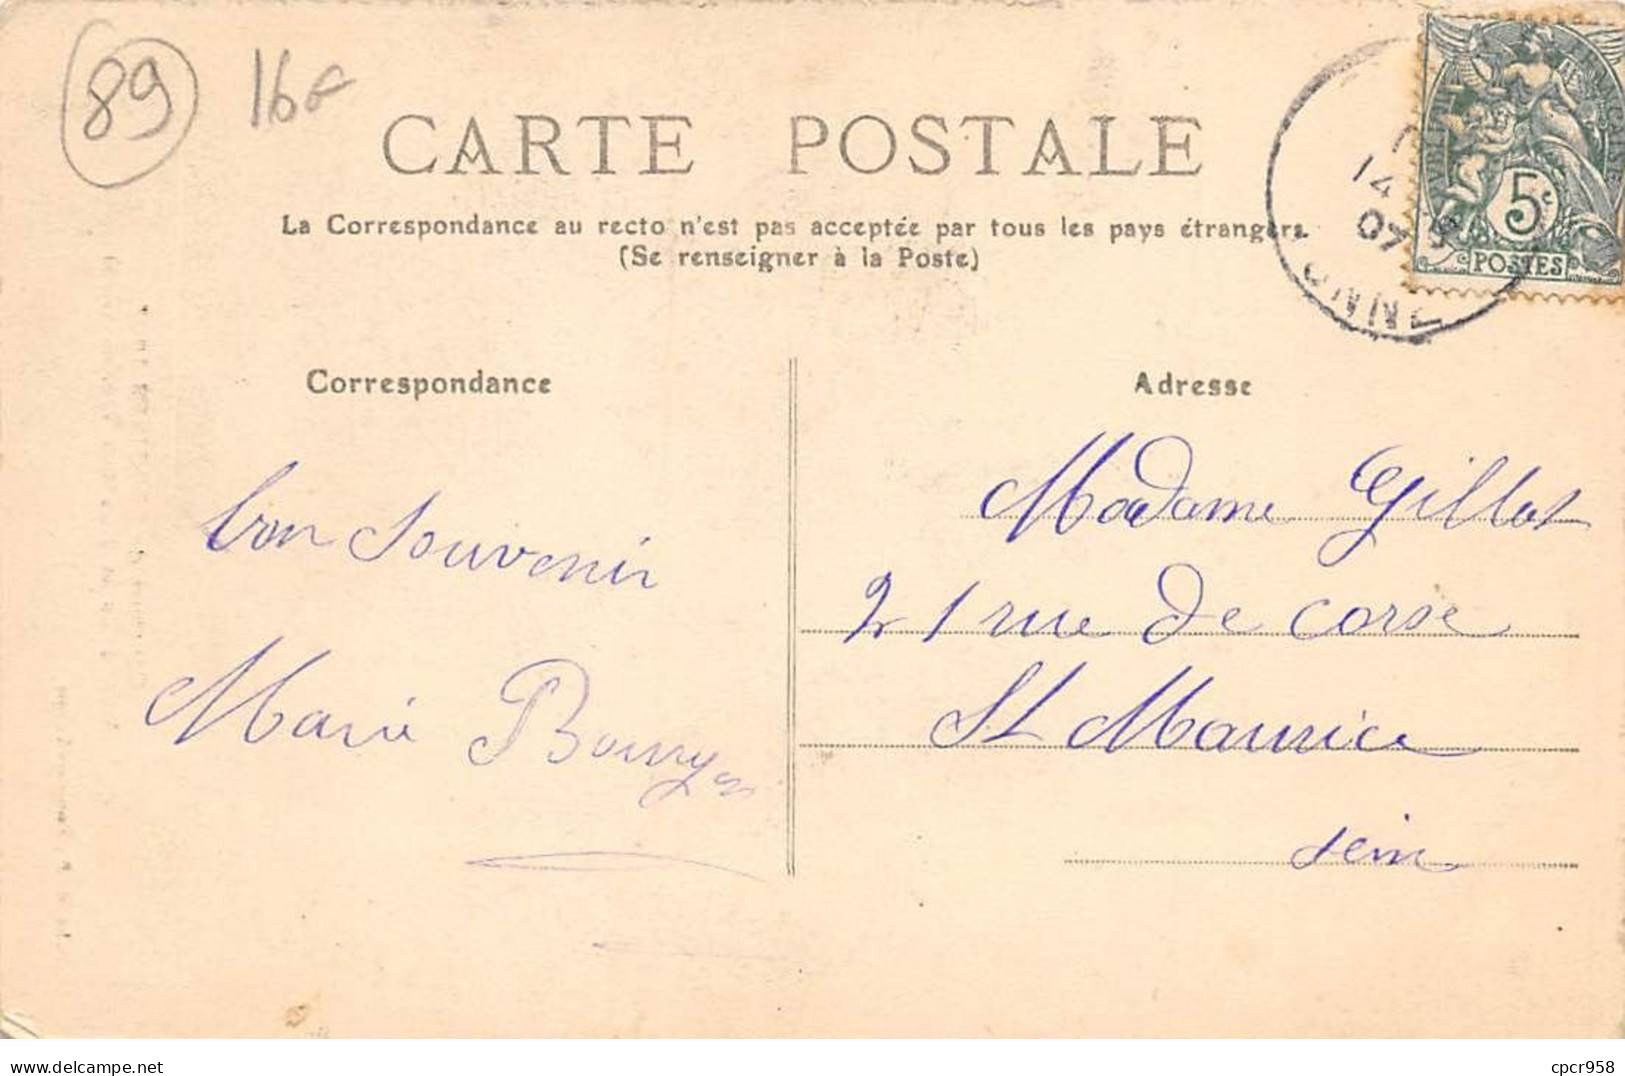 89 16F
CARTE POSTALE
La Correspondance au recto n'est pas acceptée par tous les pays étrangers.
(Se renseigner à la Poste)
14
07
YONNE
RÉPUBLIQUE FRANÇAISE
5c
POSTES
Correspondance
bon souvenir
Marie
Adresse
Madame Gillot
21 rue de corse
St Maurice
sein
Delcampe.net
cpcr958